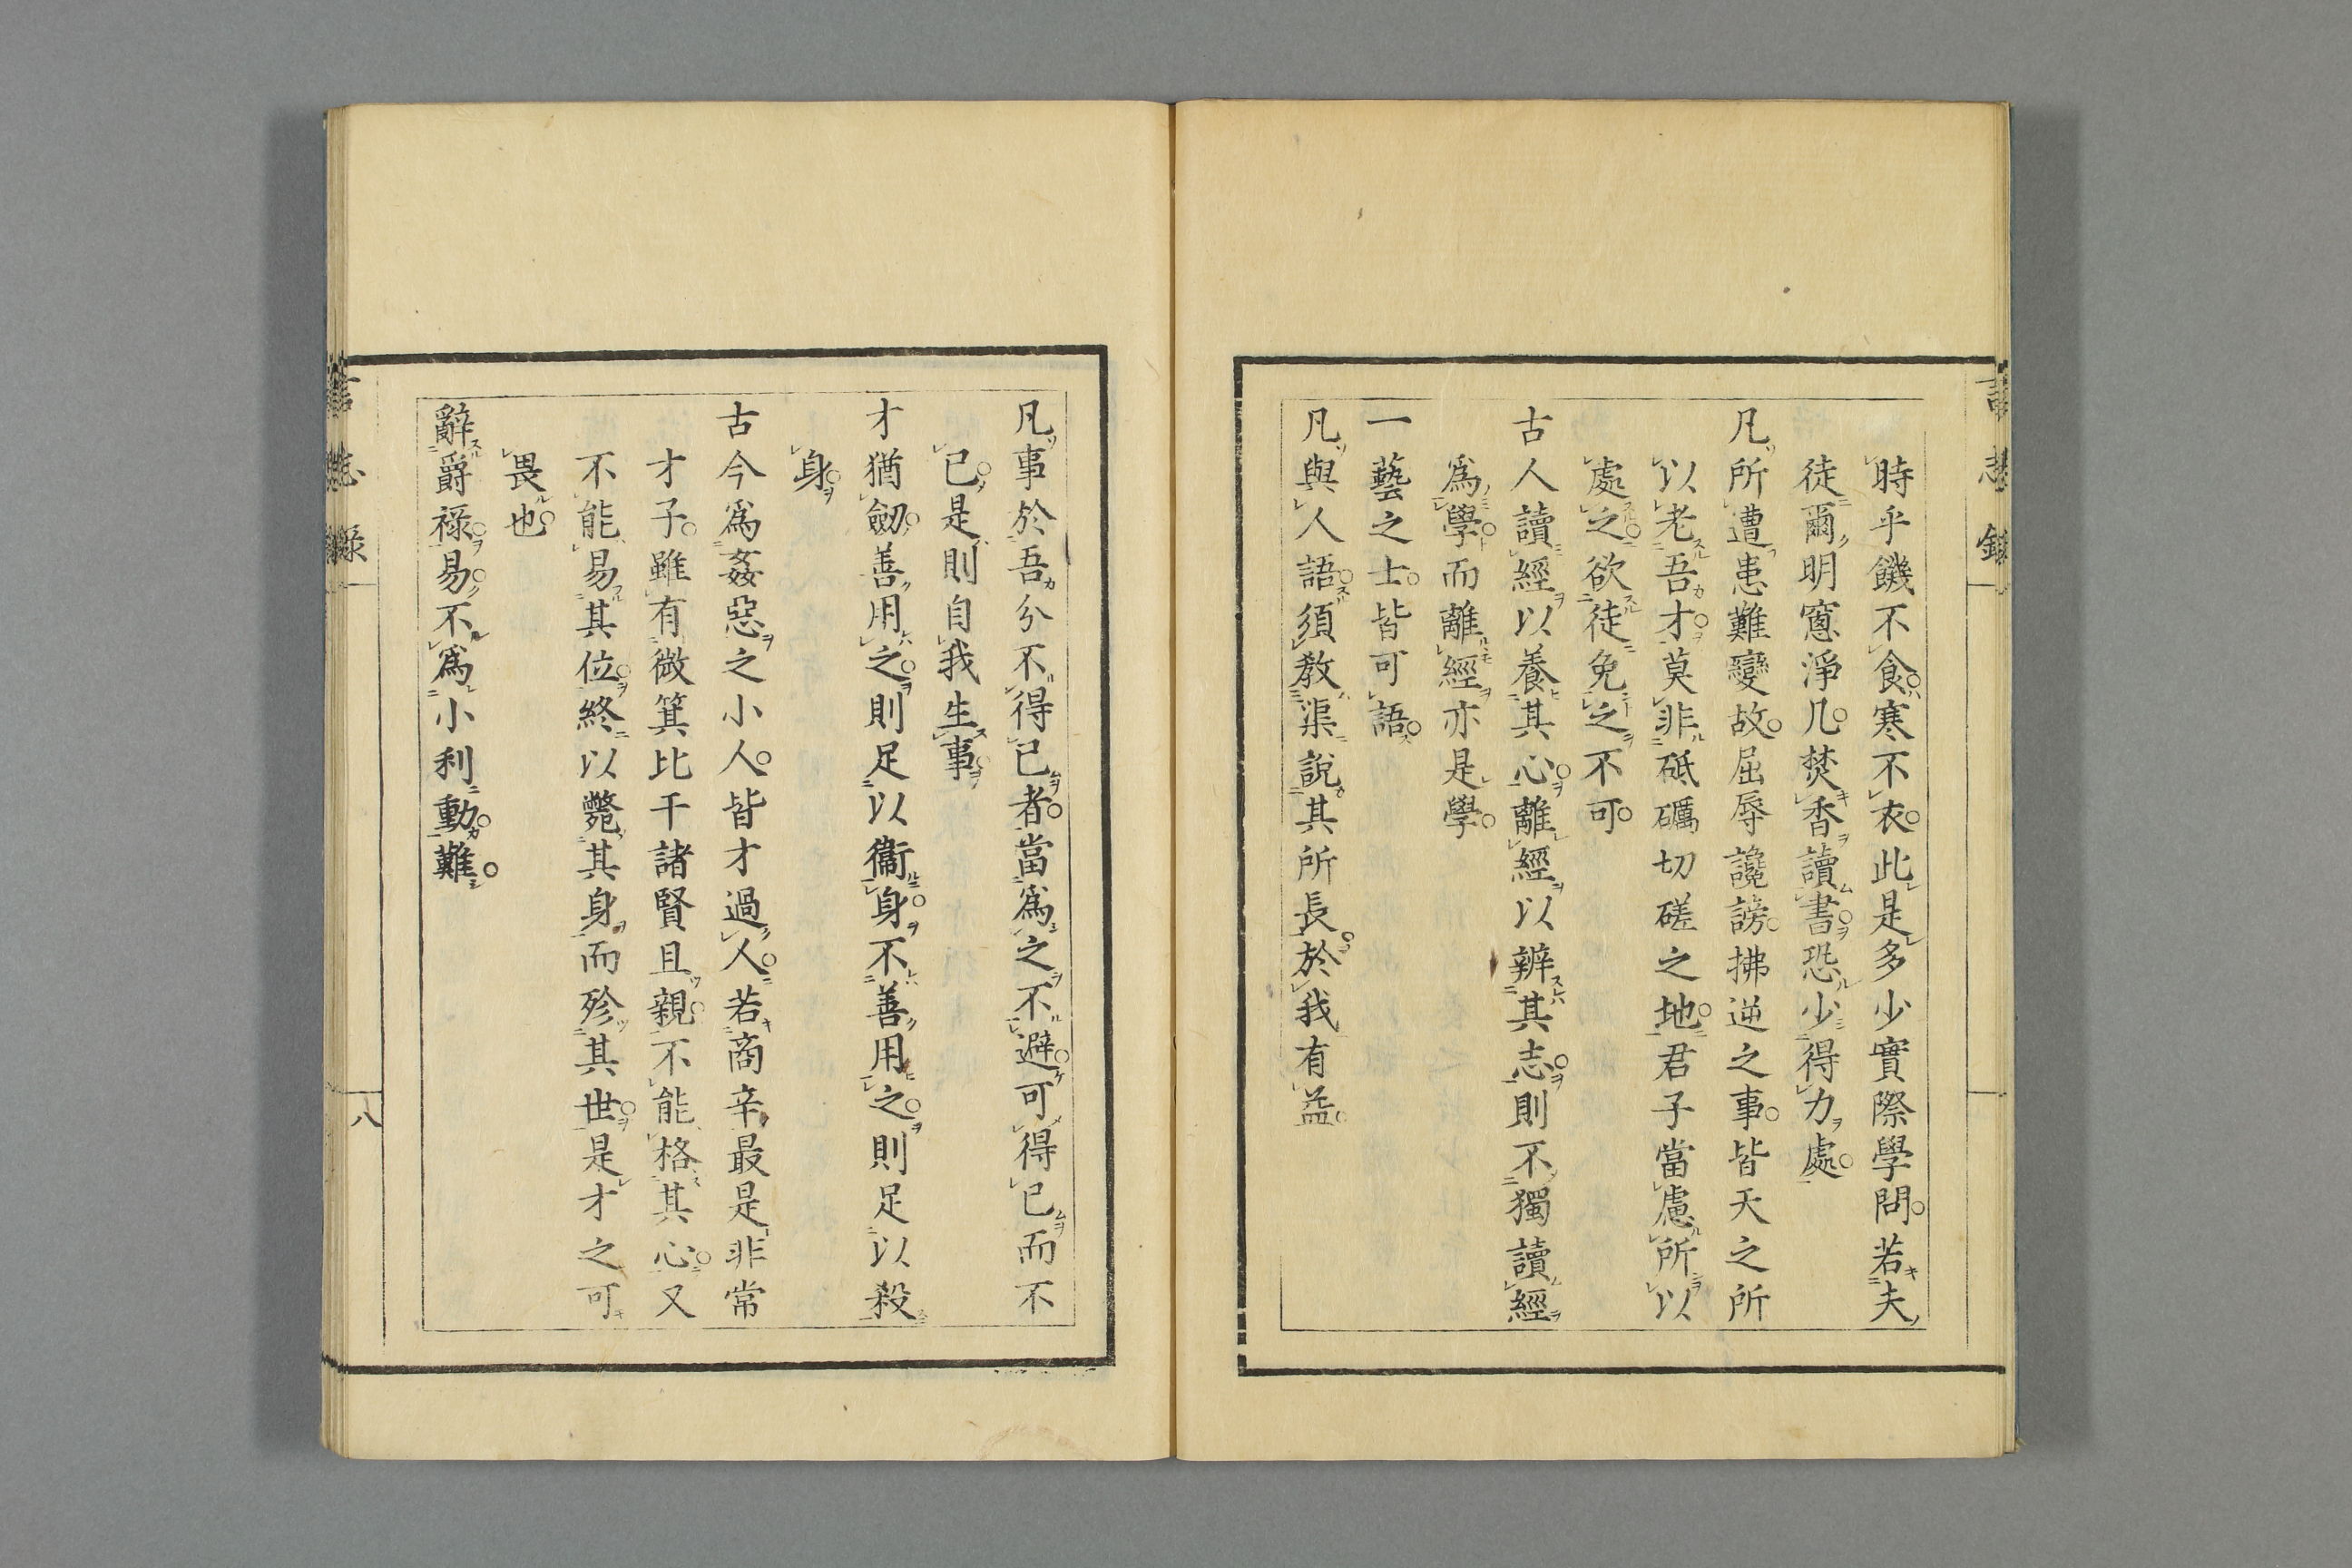 言志録
時乎饑不食寒不衣此是多少實際學問若夫
徒爾明窻淨几焚香讀書恐少得力處
凡所遭患難變故屈辱讒謗拂逆之事皆天之所
以老吾才莫非砥礪切磋之地君子當慮所以
處之欲徒免之不可
古人讀經以養其心離經以辨其志則不獨讀經
爲學而離經亦是學
一藝之士皆可語
凡與人語須教渠說其所長於我有益
凡事於吾分不得已者當爲之不避可得已而不
已是則自我生事
才猶劒善用之則足以衞身不善用之則足以殺
身
古今爲姦惡之小人皆才過人若商辛最是非常
才子雖有微箕比干諸賢且親不能格其心又
不能易其位終以斃其身而殄其世是才之可
畏也
辭爵祿易不爲小利動難
言志録
八